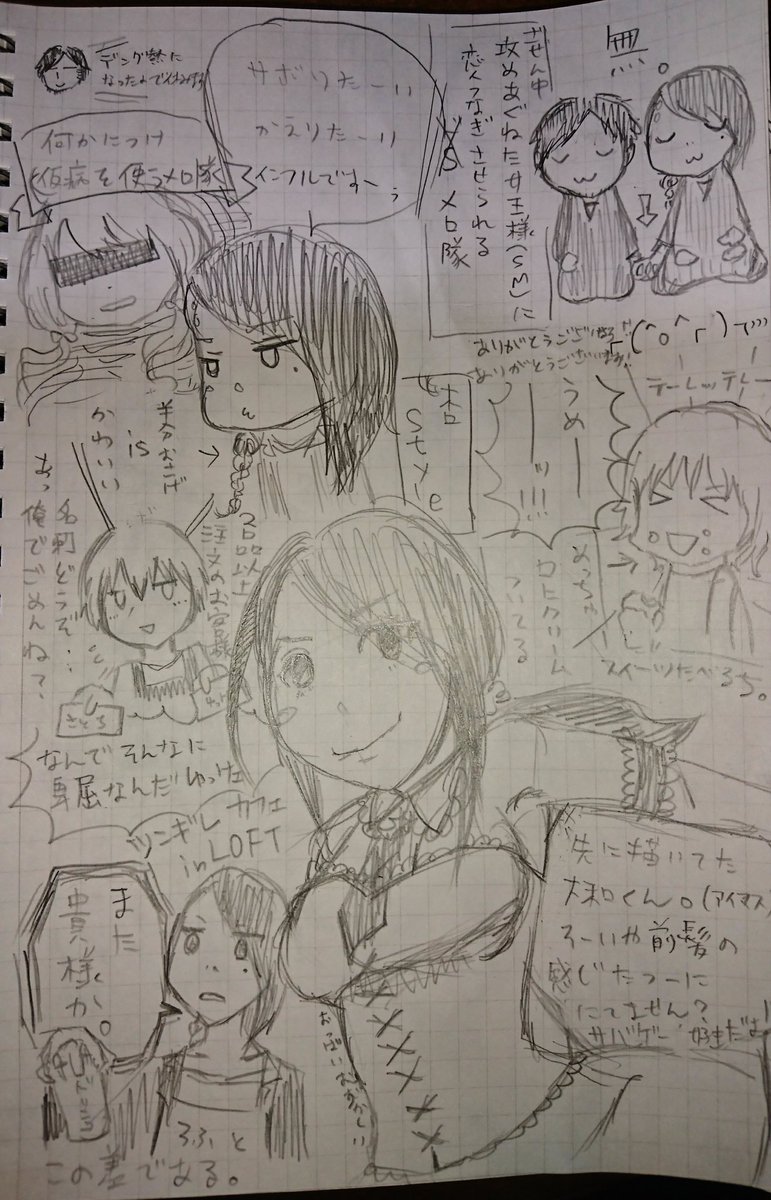 デング熱に
なったのでくねくね
サボりたーい
かえりたーい
インフルですーぅ
何かにつけ
仮病を使うメロ隊
ざぜん中
攻めあぐねた女王様(SM)に
恋人つなぎさせられる
メロ隊
無。
ありがとうございます!!
ありがとうございます!!
テーレッテレー
うめー
ーッ!!!
めっちゃ
口にクリーム
ついてる
スイーツたべるち。
style
半分おさげ
is
かわいい
3品以上
注文のお客様
名刺どうぞ…
あっ
俺でごめんね?
さとち
なんでそんなに
卑屈なんだゆっけ
ツンギレカフェ
in LOFT
また
貴様か。
ろふと
この差である。
おっぱいはむずかしい
先に描いてた
大和くん。(アイマス)
そーいや前髪の
感じたつーに
にてません?
サバゲー好きだよ!